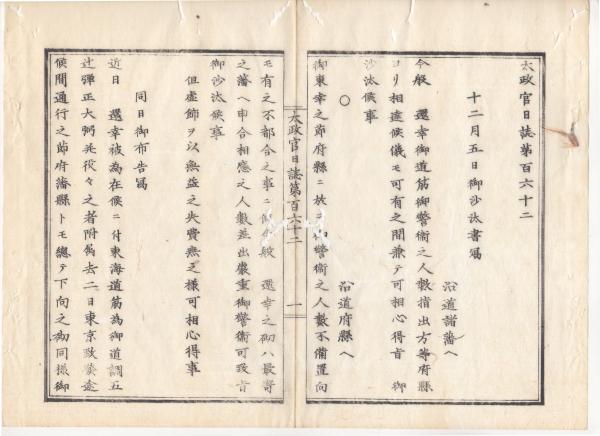 太政官日誌第百六十二
十二月五日御沙汰書寫
沿道諸藩ヘ
今般 還幸御道筋御警衞之人數指出方等府縣
ヨリ相達候儀モ可有之間兼テ可相心得旨 御
沙汰候事
○
沿道府縣ヘ
御東幸之節府縣ニ於テ御警衞之人數不備置向
太政官日誌第百六十二 一
モ有之不都合之事ニ候今般 還幸之砌ハ最寄
之藩ヘ申合相應之人數差出嚴重御警衞可致旨
御沙汰候事
但虛飾ヲ以無益之失費無之樣可相心得事
同日御布告寫
近日 還幸被為在候ニ付東海道筋為御道調五
辻彈正大弼并役々之者附屬去二日東京致發途
候間通行之節府藩縣トモ總テ下向之砌同樣御